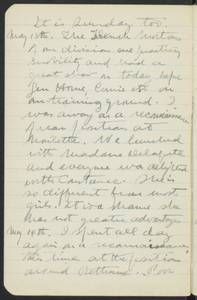 It is Sunday too.
May 13th. The French mortars
of our division are practicing
mobility and had a
great show on today before
Gen Horne, Currie etc on
our training ground. I
was away on a reconnaissance
of rear positions at
We lunched
with Madame Delegate
and everyone was delighted
with Constance. She is
so different from most
girls. It is a shame she
has not greater advantages
May 14th. I spent all day
again on a reconnaissance,
this time at the position
around Bethune. Poor